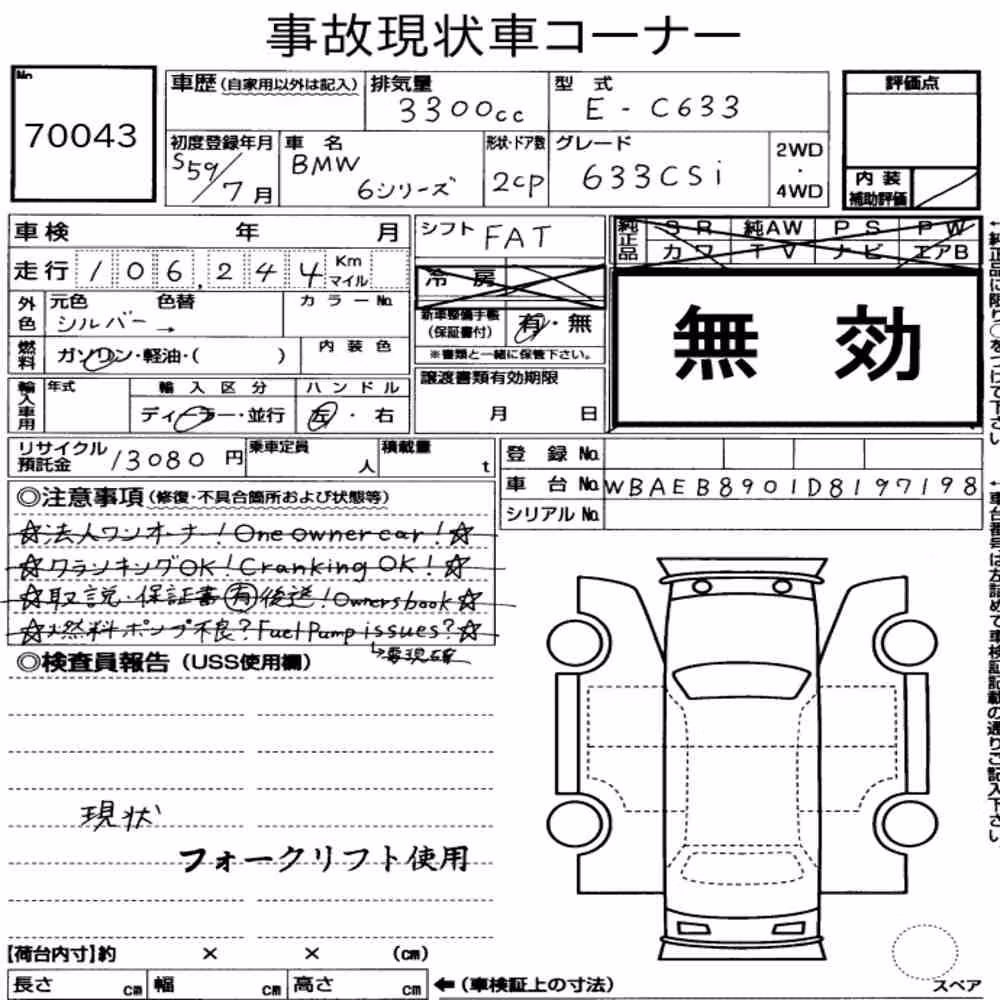 事故現状車コーナー
No.
70043
車歴(自家用以外は記入)
排気量
3300cc
型式
E-C633
評価点
初度登録年月
S59/7月
車名
BMW
6シリーズ
形状・ドア数
2CP
グレード
633CSi
2WD
・
4WD
内装
補助評価
車検 年 月
シフト FAT
純正品
SR 純AW PS PW
カワ TV ナビ エアB
走行 106,244 Km
マイル
冷房
外色
元色 色替
シルバー→
カラーNo.
新車整備手帳
(保証書付)
有・無
※書類と一緒に保管下さい。
無効
燃料
ガソリン・軽油・( )
内装色
輸入車用
年式
輸入区分
ディーラー・並行
ハンドル
左・右
譲渡書類有効期限
月 日
←純正品に限り○をつけて下さい
リサイクル
預託金
13080円
乗車定員
人
積載量
t
登録No.
車台No. WBAEB8901D8197198
シリアルNo.
◎注意事項(修復・不具合箇所および状態等)
☆法人ワンオーナー!One owner car!☆
☆クランキングOK!Cranking OK!☆
☆取説・保証書有後送!Owners book☆
☆燃料ポンプ不良?Fuel Pump issues?☆
↳要現確
←車台番号は左詰めで車検証記載の通りご記入下さい。
◎検査員報告(USS使用欄)
現状
フォークリフト使用
【荷台内寸】約 × × (cm)
長さ cm 幅 cm 高さ cm ←(車検証上の寸法)
スペア